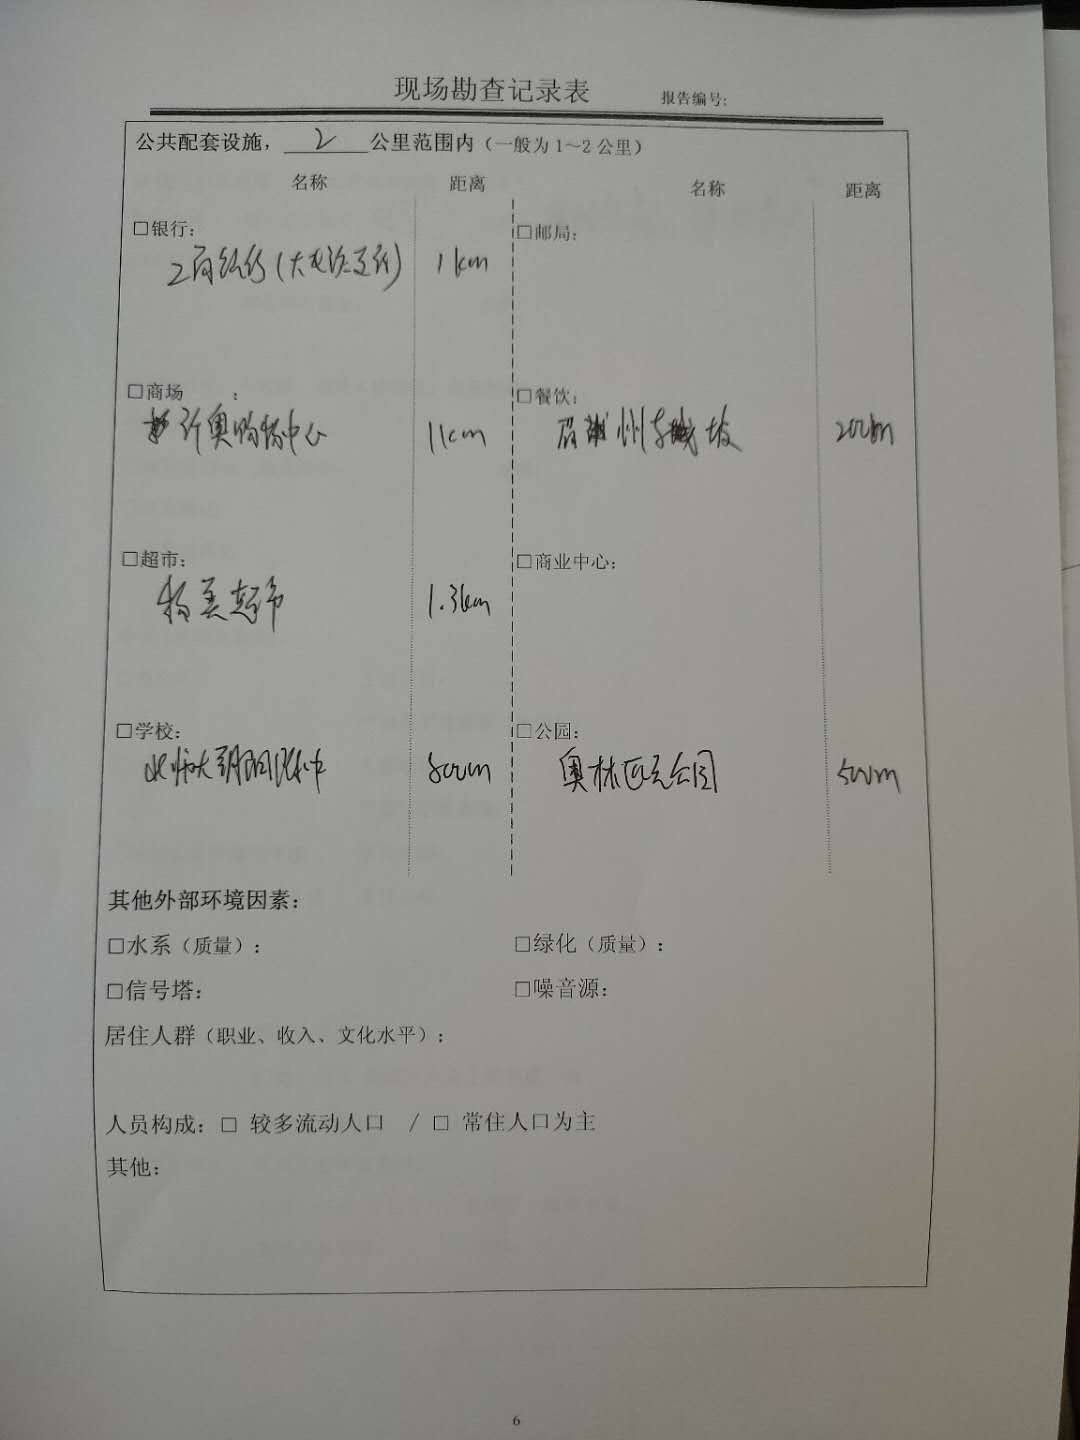 现场勘查记录表 报告编号:
公共配套设施，2公里范围内（一般为1～2公里）
名称 距离 名称 距离
□银行: □邮局:
工商银行(大屯路支行) 1km
□商场 : □餐饮:
新奥购物中心 1km 眉州东坡 200m
□超市: □商业中心:
超市 1.3km
□学校: □公园:
北师大朝阳附中 800m 奥林匹克公园 500m
其他外部环境因素:
□水系（质量）: □绿化（质量）:
□信号塔: □噪音源:
居住人群（职业、收入、文化水平）:
人员构成: □ 较多流动人口 / □ 常住人口为主
其他:
6